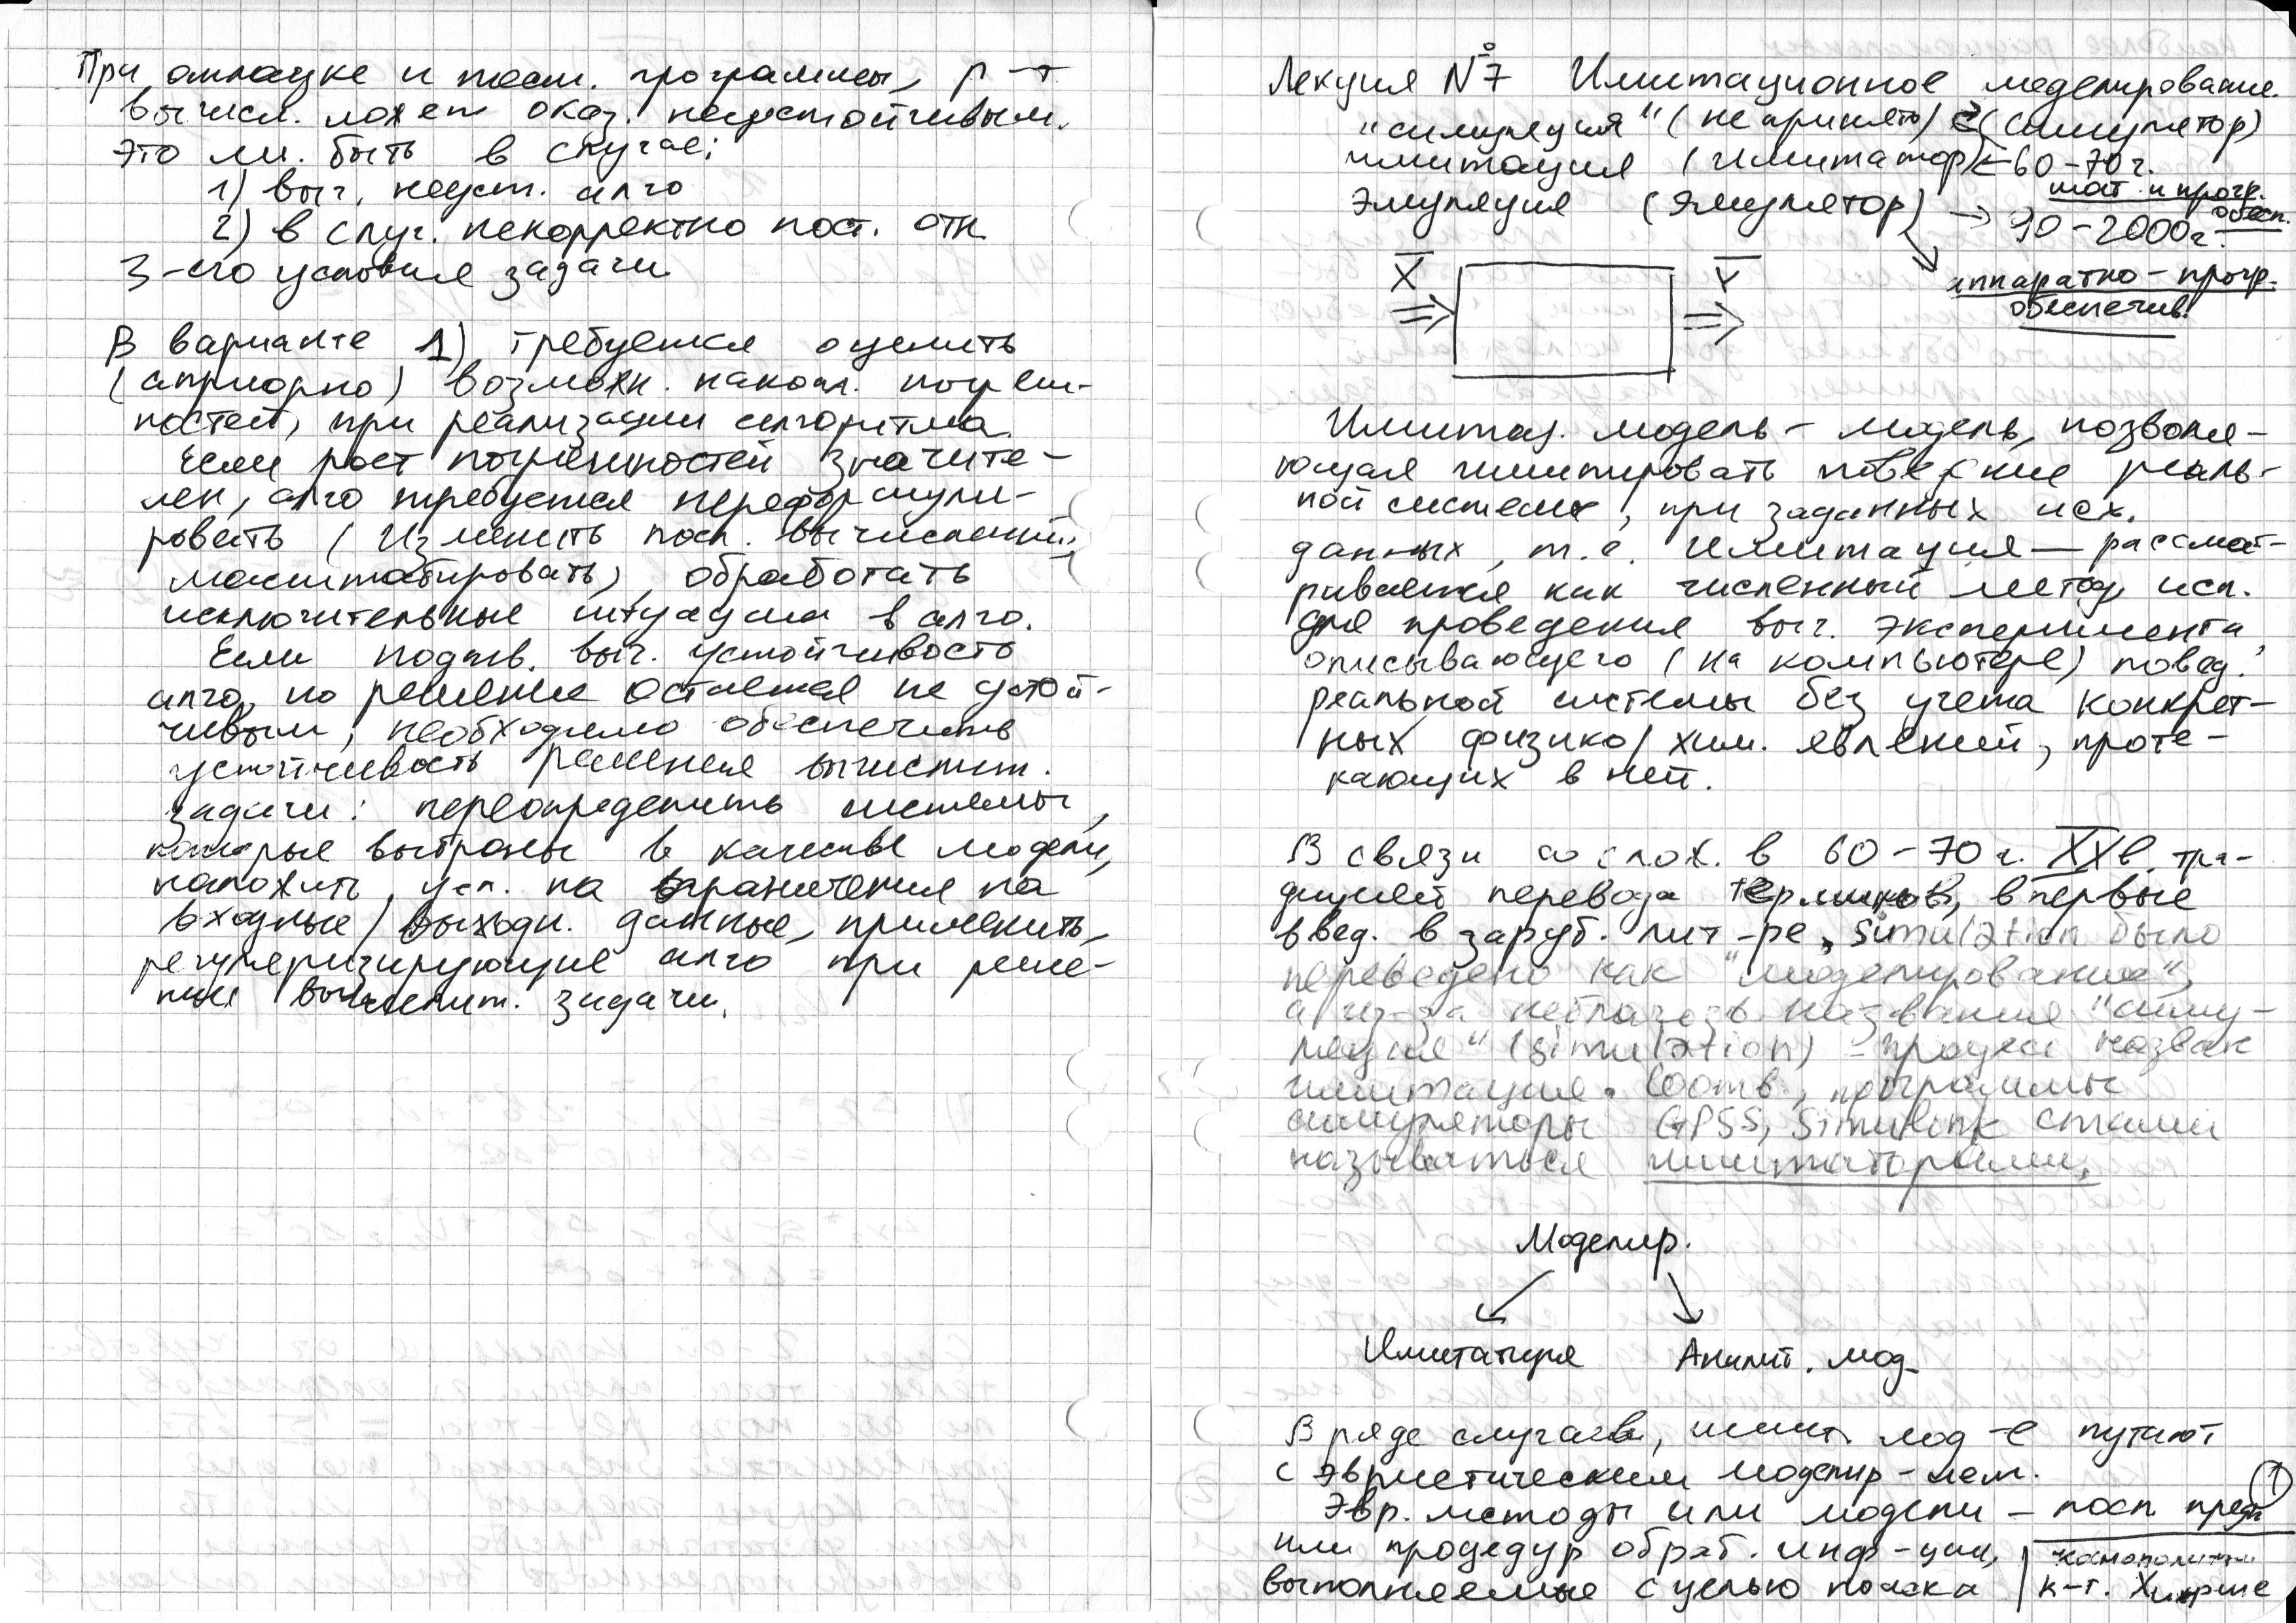 При отладке и тест. программы, р-т
вычисл. может оказ. неустойчивым.
Это м. быть в случае:
1) выч. неуст. алго
2) в случ. некорректно пост. отн.
3-его условия задачи
В варианте 1) требуется оценить
(априорно) возможн. накопл. погреш-
ностей, при реализации алгоритма.
Если рост погрешностей значите-
лен, алго требуется переформули-
ровать (изменить посл. вычислений,
масштабировать), обработать
исключительные ситуации в алго.
Если подтв. выч. устойчивость
алго, но решение остается не устой-
чивым, необходимо обеспечить
устойчивость решения вычислит.
задачи: переопределить системы,
которые выбраны в качестве модели,
наложить усл. на ограничения на
входные/выходн. данные, применить
регуляризирующие алго при реше-
нии вычислит. задачи.
Лекция №7 Имитационное моделирование.
"симуляция" (не принять) (симулятор)
имитация (имитатор) ← 60-70 г.
мат. и прогр. обесп.
эмуляция (эмулятор) → 90-2000 г.
аппаратно-прогр.
обеспечив.
X̄ ⇒ ⇒ Ȳ
Имитац. модель - модель, позволя-
ющая имитировать поведение реаль-
ной системы, при заданных исх.
данных, т.е. имитация — рассмат-
ривается как численный метод исп.
для проведения выч. эксперимента,
описывающего (на компьютере) повед.
реальной системы без учета конкрет-
ных физико/хим. явлений, проте-
кающих в ней.
В связи со слож. в 60-70 г. XX в. тра-
дицией перевода терминов, впервые
введ. в заруб. лит-ре, simulation было
переведено как "моделирование",
а из-за неблагозв. названия "симу-
ляция" (simulation) - процесс назван
имитация. Соотв., программы
симуляторы GPSS, Simulink стали
называться имитаторами.
Моделир.
Имитация Аналит. мод.
В ряде случаев, имит. мод-е путают
с эвристическим моделир-ием.
Эвр. методы или модели - посл. предп
или процедур обраб. инф-ции,
выполняемые с целью поиска
к-т.
1